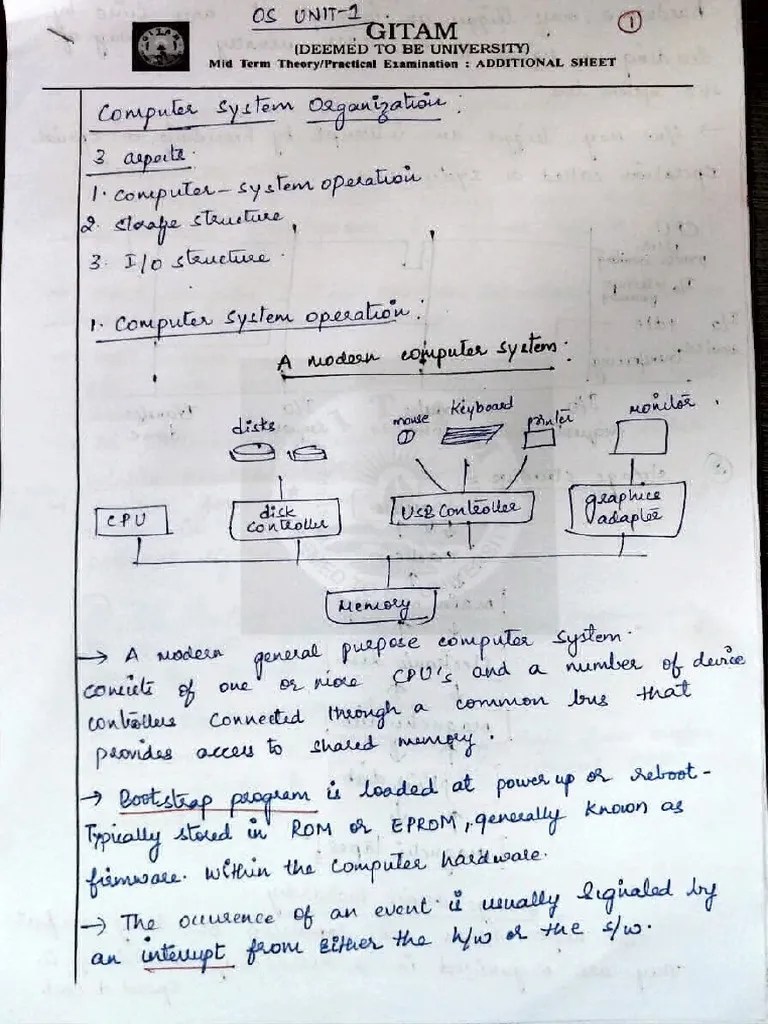 OS UNIT-1
1
GITAM
(DEEMED TO BE UNIVERSITY)
Mid Term Theory/Practical Examination : ADDITIONAL SHEET
Computer System Organization :
3 aspects.
1. computer-system operation
2. storage structure
3. I/O structure.
1. Computer system operation :
A modern computer system.
disks mouse Keyboard printer monitor
CPU disk controller USB Controller graphics adapter
Memory
→ A modern general purpose computer system.
consists of one or more CPU's, and a number of device
controllers connected through a common bus that
provides access to shared memory.
→ Bootstrap program is loaded at power up or reboot -
Typically stored in ROM or EPROM, generally known as
firmware. Within the computer hardware.
→ The occurence of an event is usually signaled by
an interrupt from either the h/w or the s/w.